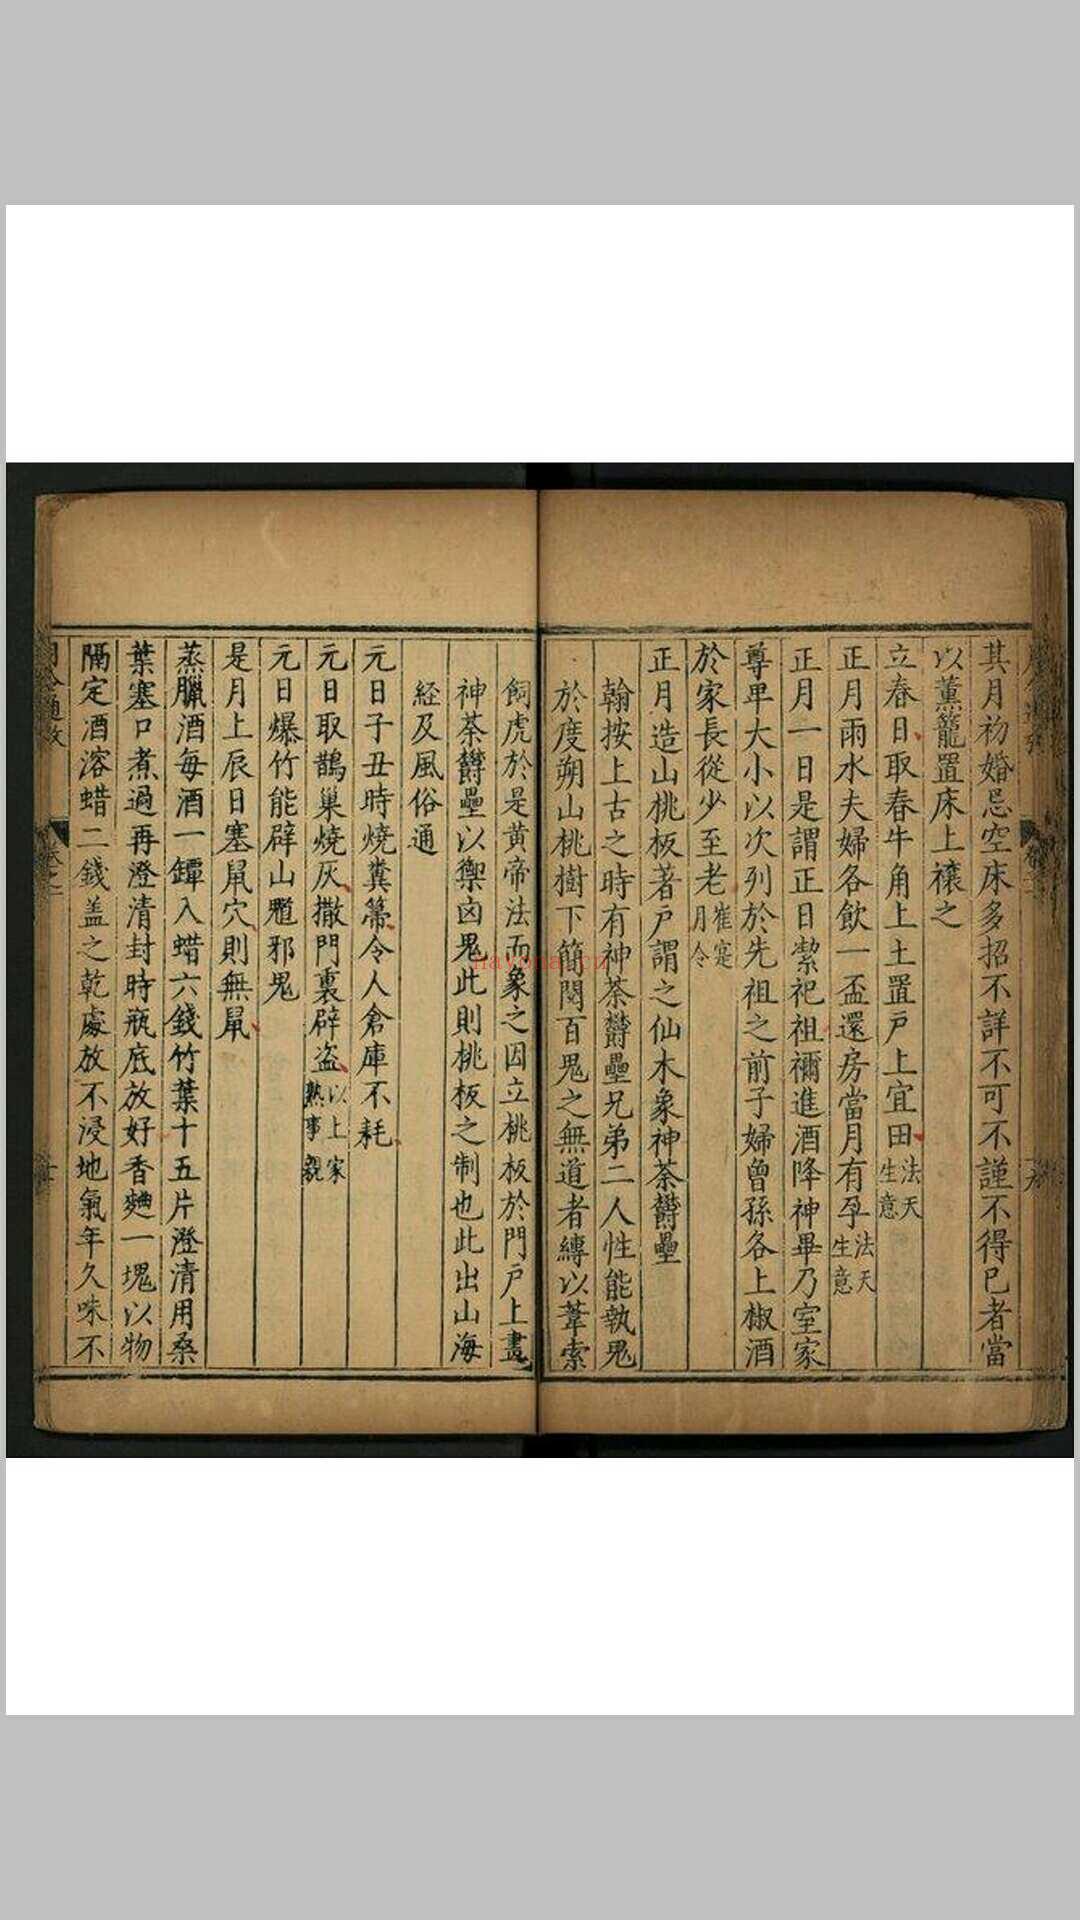 其月初婚忌空床多招不詳不可不謹不得已者當
以薰籠置床上禳之
立春日取春牛角上土置戶上宜田法天生意
正月雨水夫婦各飲一盃還房當月有孕法天生意
正月一日是謂正日絜祀祖禰進酒降神畢乃室家
尊卑大小以次列於先祖之前子婦曾孫各上椒酒
於家長從少至老崔寔月令
正月造山桃板著戶謂之仙木象神荼鬱壘
翰按上古之時有神荼鬱壘兄弟二人性能執鬼
於度朔山桃樹下簡閱百鬼之無道者縛以葦索
飼虎於是黄帝法而象之因立桃板於門戶上畫
神荼鬱壘以禦凶鬼此則桃板之制也此出山海
経及風俗通
元日子丑時燒糞箒令人倉庫不耗
元日取鵲巢燒灰撒門裏辟盗以上家塾事親
元日爆竹能辟山魈邪鬼
是月上辰日塞鼠穴則無鼠
蒸臘酒每酒一罈入蜡六錢竹葉十五片澄清用桑
葉塞口煮過再澄清封時瓶底放好香麯一塊以物
隔定酒溶蜡二錢盖之乾處放不浸地氣年久味不
月令通攷
hayona.cn